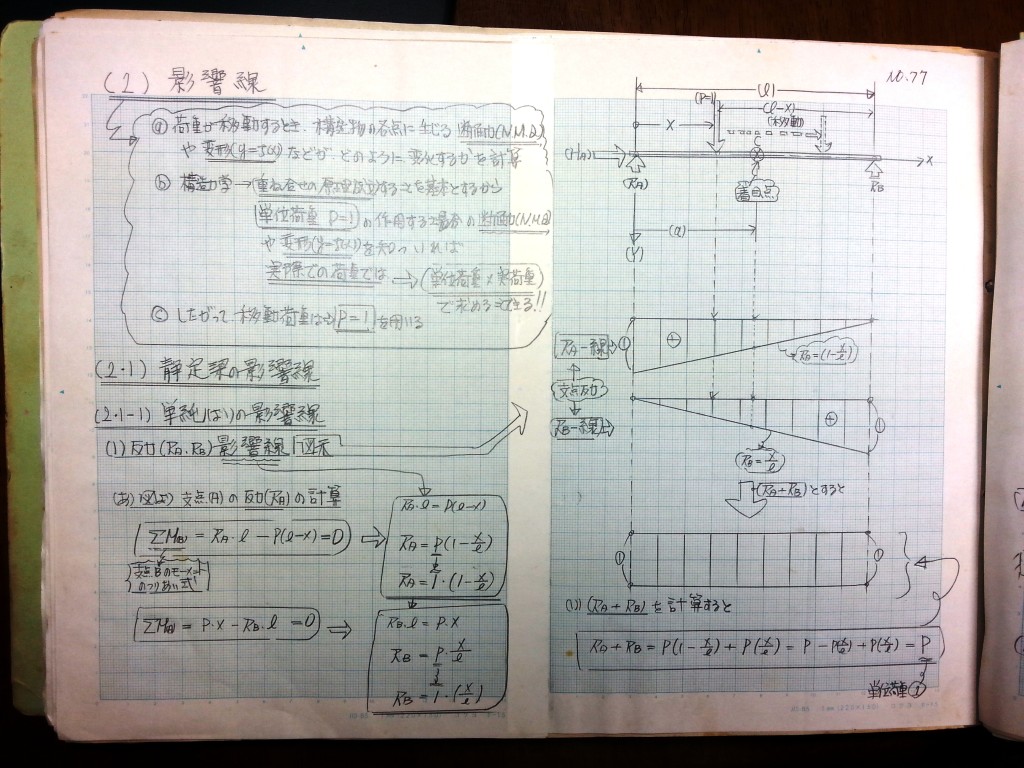 (2) 影響線
ⓐ 荷重が移動するとき、構造物の各点に生じる断面力(N.M.Q)
や変形(y=f(x))などが、どのように変化するかを計算
ⓑ 構造力学→重ね合せの原理成立することを基本とするから
単位荷重 P=1 の作用する場合の断面力(N.M.Q)
や変形(y=f(x))を知っていれば
実際での荷重では → (単位荷重×実荷重)
で求める事できる!!
ⓒ したがって移動荷重は P=1 を用いる
(2・1) 静定梁の影響線
(2・1-1) 単純ばりの影響線
(1) 反力(RA、RB)影響線 図示
(あ) 図より 支点(A)の反力(RA)の計算
ΣM(B) = RA・l − P(l−x) = 0
支点Bのモーメント
のつりあい式
ΣM(A) = P・x − RB・l = 0
RA・l = P(l−x)
RA = P(1−x/l)
RA = 1・(1−x/l)
RB・l = P・x
RB = P・x/l
RB = 1・(x/l)
NO.77
(l)
(P=1)
(l−x)
x
(移動)
(HA)
x
(RA)
RB
着目点
(a)
(Y)
RA−線
①
⊕
RA=(1−x/l)
支点反力
RB−線
⊕
①
RB=x/l
(RA+RB)とすると
①
①
(い) (RA+RB)を計算すると
RA+RB = P(1−x/l) + P(x/l) = P − P(x/l) + P(x/l) = P
単位荷重①